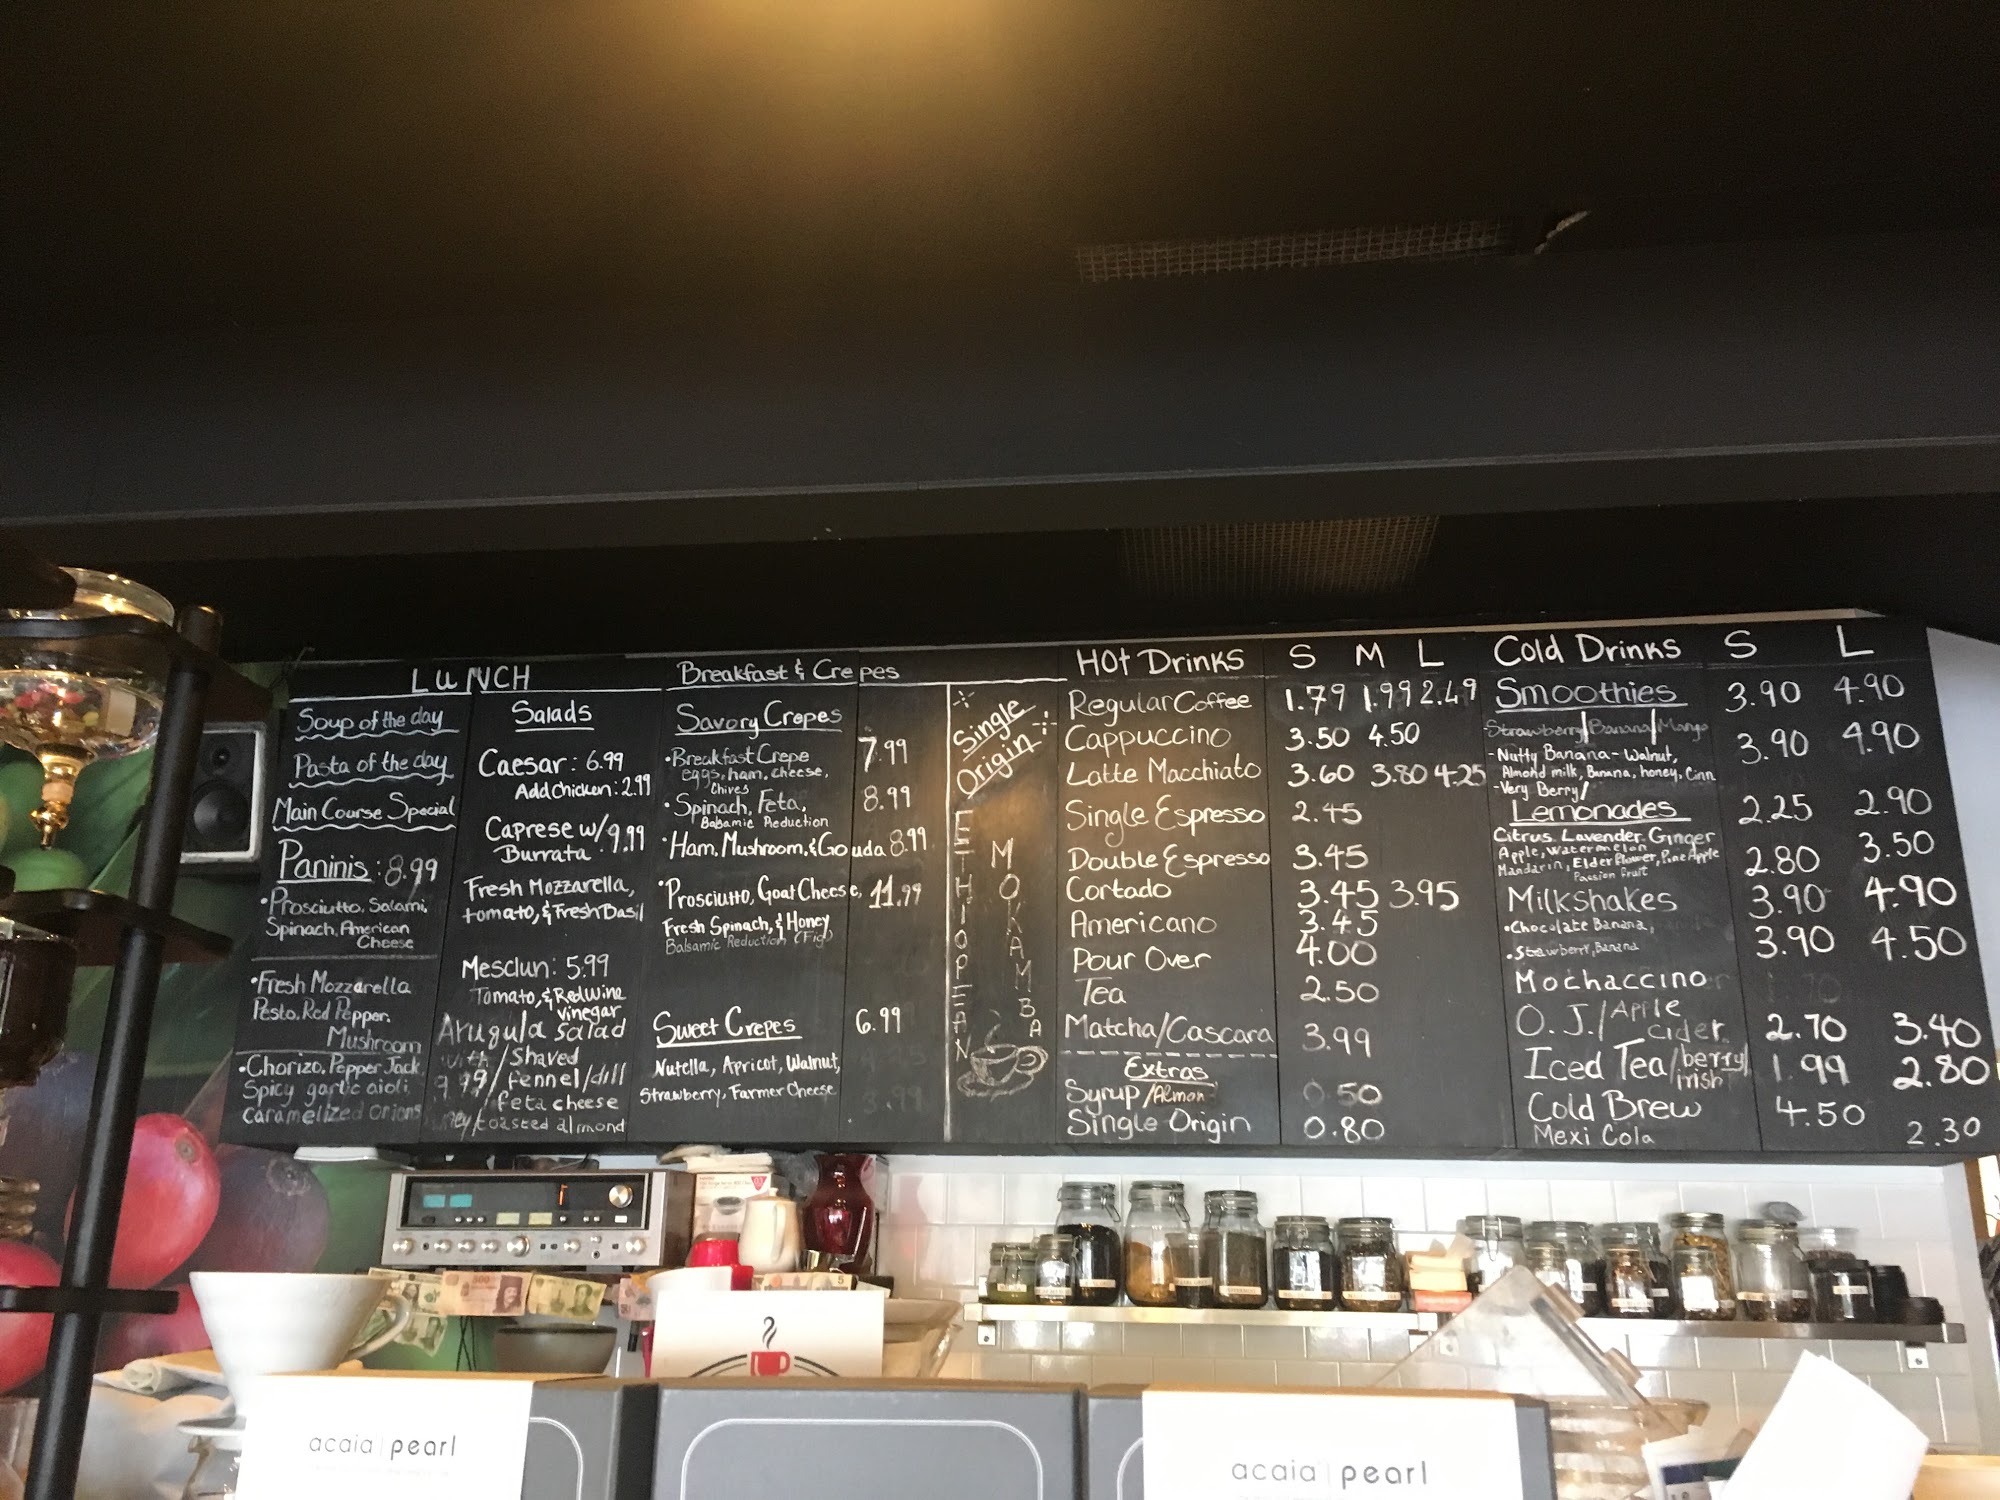 LUNCH
Soup of the day
Pasta of the day
Main Course Special
Paninis: 8.99
•Prosciutto, Salami,
Spinach, American
Cheese
•Fresh Mozzarella
Pesto, Red Pepper,
Mushroom
•Chorizo, Pepper Jack,
Spicy garlic aioli
caramelized onions
Salads
Caesar: 6.99
Add chicken: 2.99
Caprese w/ 9.99
Burrata
Fresh Mozzarella,
tomato, & Fresh Basil
Mesclun: 5.99
Tomato, & Red Wine
vinegar
Arugula salad
with / shaved
9.99 / fennel / dill
feta cheese
/ toasted almond
Breakfast & Crepes
Savory Crepes
•Breakfast Crepe 7.99
eggs, ham, cheese,
chives
•Spinach, Feta, 8.99
Balsamic Reduction
•Ham, Mushroom, & Gouda 8.99
•Prosciutto, Goat Cheese, 11.99
Fresh Spinach, & Honey
Balsamic Reduction (Fig)
Sweet Crepes 6.99
Nutella, Apricot, Walnut,
Strawberry, Farmer Cheese
3.99
Single
Origin
ETHIOPEAN
MOKAMBA
Hot Drinks S M L
Regular Coffee 1.79 1.99 2.49
Cappuccino 3.50 4.50
Latte Macchiato 3.60 3.80 4.25
Single Espresso 2.45
Double Espresso 3.45
Cortado 3.45 3.95
Americano 3.45
Pour Over 4.00
Tea 2.50
Matcha/Cascara 3.99
Extras
Syrup/Almon 0.50
Single Origin 0.80
Cold Drinks S L
Smoothies 3.90 4.90
Strawberry/Banana/Mango
-Nutty Banana - Walnut, 3.90 4.90
Almond milk, Banana, honey, Cinn
-Very Berry/
Lemonades 2.25 2.90
Citrus Lavender Ginger
Apple, Watermelon 2.80 3.50
Mandarin, Elder Flower, Pine Apple
Passion fruit
Milkshakes 3.90 4.90
•Chocolate Banana,
•Strawberry, Banana 3.90 4.50
Mochaccino
O.J./Apple cider 2.70 3.40
Iced Tea/berry/irish 1.99 2.80
Cold Brew 4.50
Mexi Cola 2.30
acaia | pearl
acaia | pearl
500
5